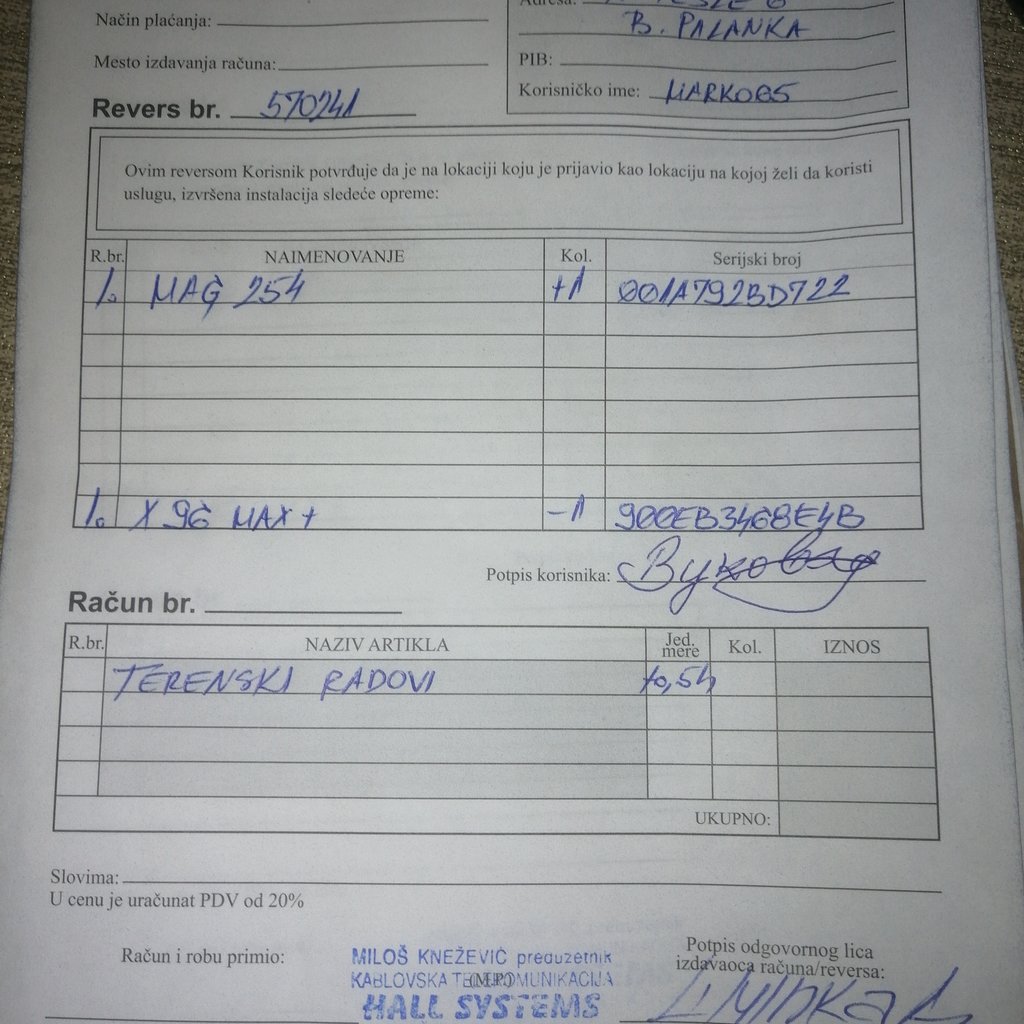 Način plaćanja:
Adresa:
B. PALANKA
Mesto izdavanja računa:
PIB:
Korisničko ime: MARKOBS
Revers br. 570241
Ovim reversom Korisnik potvrđuje da je na lokaciji koju je prijavio kao lokaciju na kojoj želi da koristi
uslugu, izvršena instalacija sledeće opreme:
R.br. NAIMENOVANJE Kol. Serijski broj
1. MAG 254 +1 001A792BD722
1. X96 MAX+ -1 900EB3468E4B
Potpis korisnika:
Račun br.
R.br. NAZIV ARTIKLA Jed. mere Kol. IZNOS
TERENSKI RADOVI
UKUPNO:
Slovima:
U cenu je uračunat PDV od 20%
Račun i robu primio:
MILOŠ KNEŽEVIĆ preduzetnik
KABLOVSKA TELEKOMUNIKACIJA
HALL SYSTEMS
(M.P.)
Potpis odgovornog lica
izdavaoca računa/reversa: